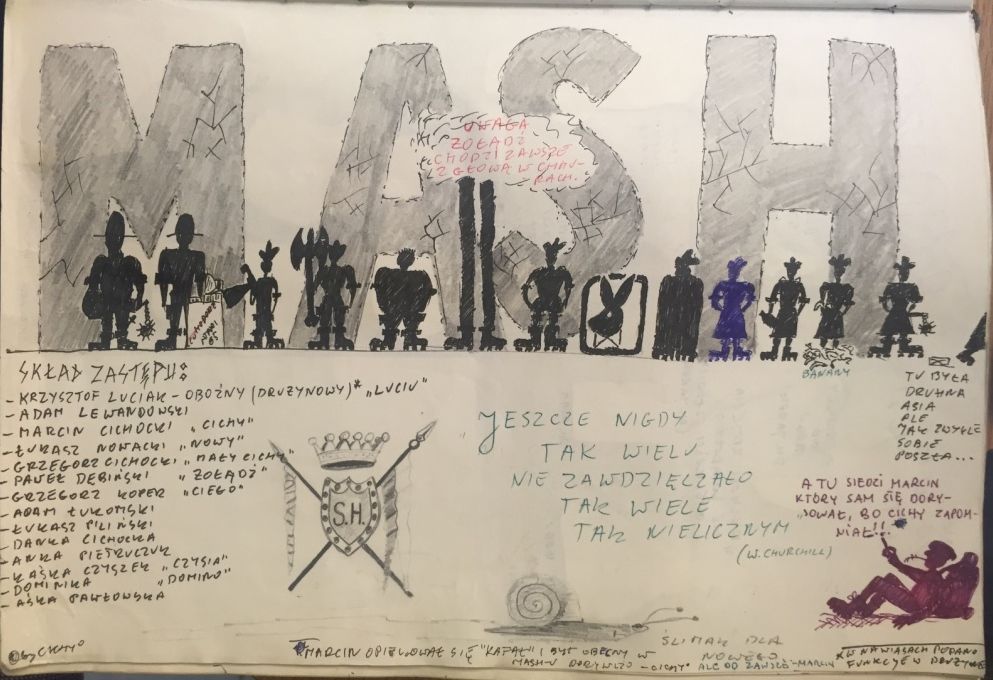 MASH
UWAGA
ŻOŁĄDŹ
CHODZI ZAWSZE
Z GŁOWĄ W CHMU-
RACH.
BANANY
SKŁAD ZASTĘPU:
- KRZYSZTOF LUCIAK - OBOŹNY (DRUŻYNOWY)* "LUCIU"
- ADAM LEWANDOWSKI
- MARCIN CICHOCKI "CICHY"
- ŁUKASZ NOWACKI "NOWY"
- GRZEGORZ CICHOCKI "MAŁY CICHY"
- PAWEŁ DĘBIŃSKI "ŻOŁĄDŹ"
- GRZEGORZ KOPER "CIEGO"
- ADAM ŁUKOMSKI
- ŁUKASZ PILIŃSKI
- DANKA CICHOCKA
- ANKA PIETRUCZUK
- KAŚKA CZYSZEK "CZYSIA"
- DOMINIKA "DOMINO"
- AŚKA PAWŁOWSKA
S.H.
JESZCZE NIGDY
TAK WIELU
NIE ZAWDZIĘCZAŁO
TAK WIELE
TAK NIELICZNYM
(W. CHURCHILL)
TU BYŁA
DRUHNA
ASIA
ALE
JAK ZWYKLE
SOBIE
POSZŁA...
A TU SIEDZI MARCIN
KTÓRY SAM SIĘ DORY-
SOWAŁ, BO CICHY ZAPOM-
NIAŁ!!
ŚLIMAK DLA
NOWEGO
© by CICHY
MARCIN OPIEKOWAŁ SIĘ "KAFAŁ" I BYŁ OBECNY W
MASH-U DORYWCZO - CICHY ALE OD ZAWSZE - MARCIN
* W NAWIASACH PODANO
FUNKCJE W DRUŻYNIE